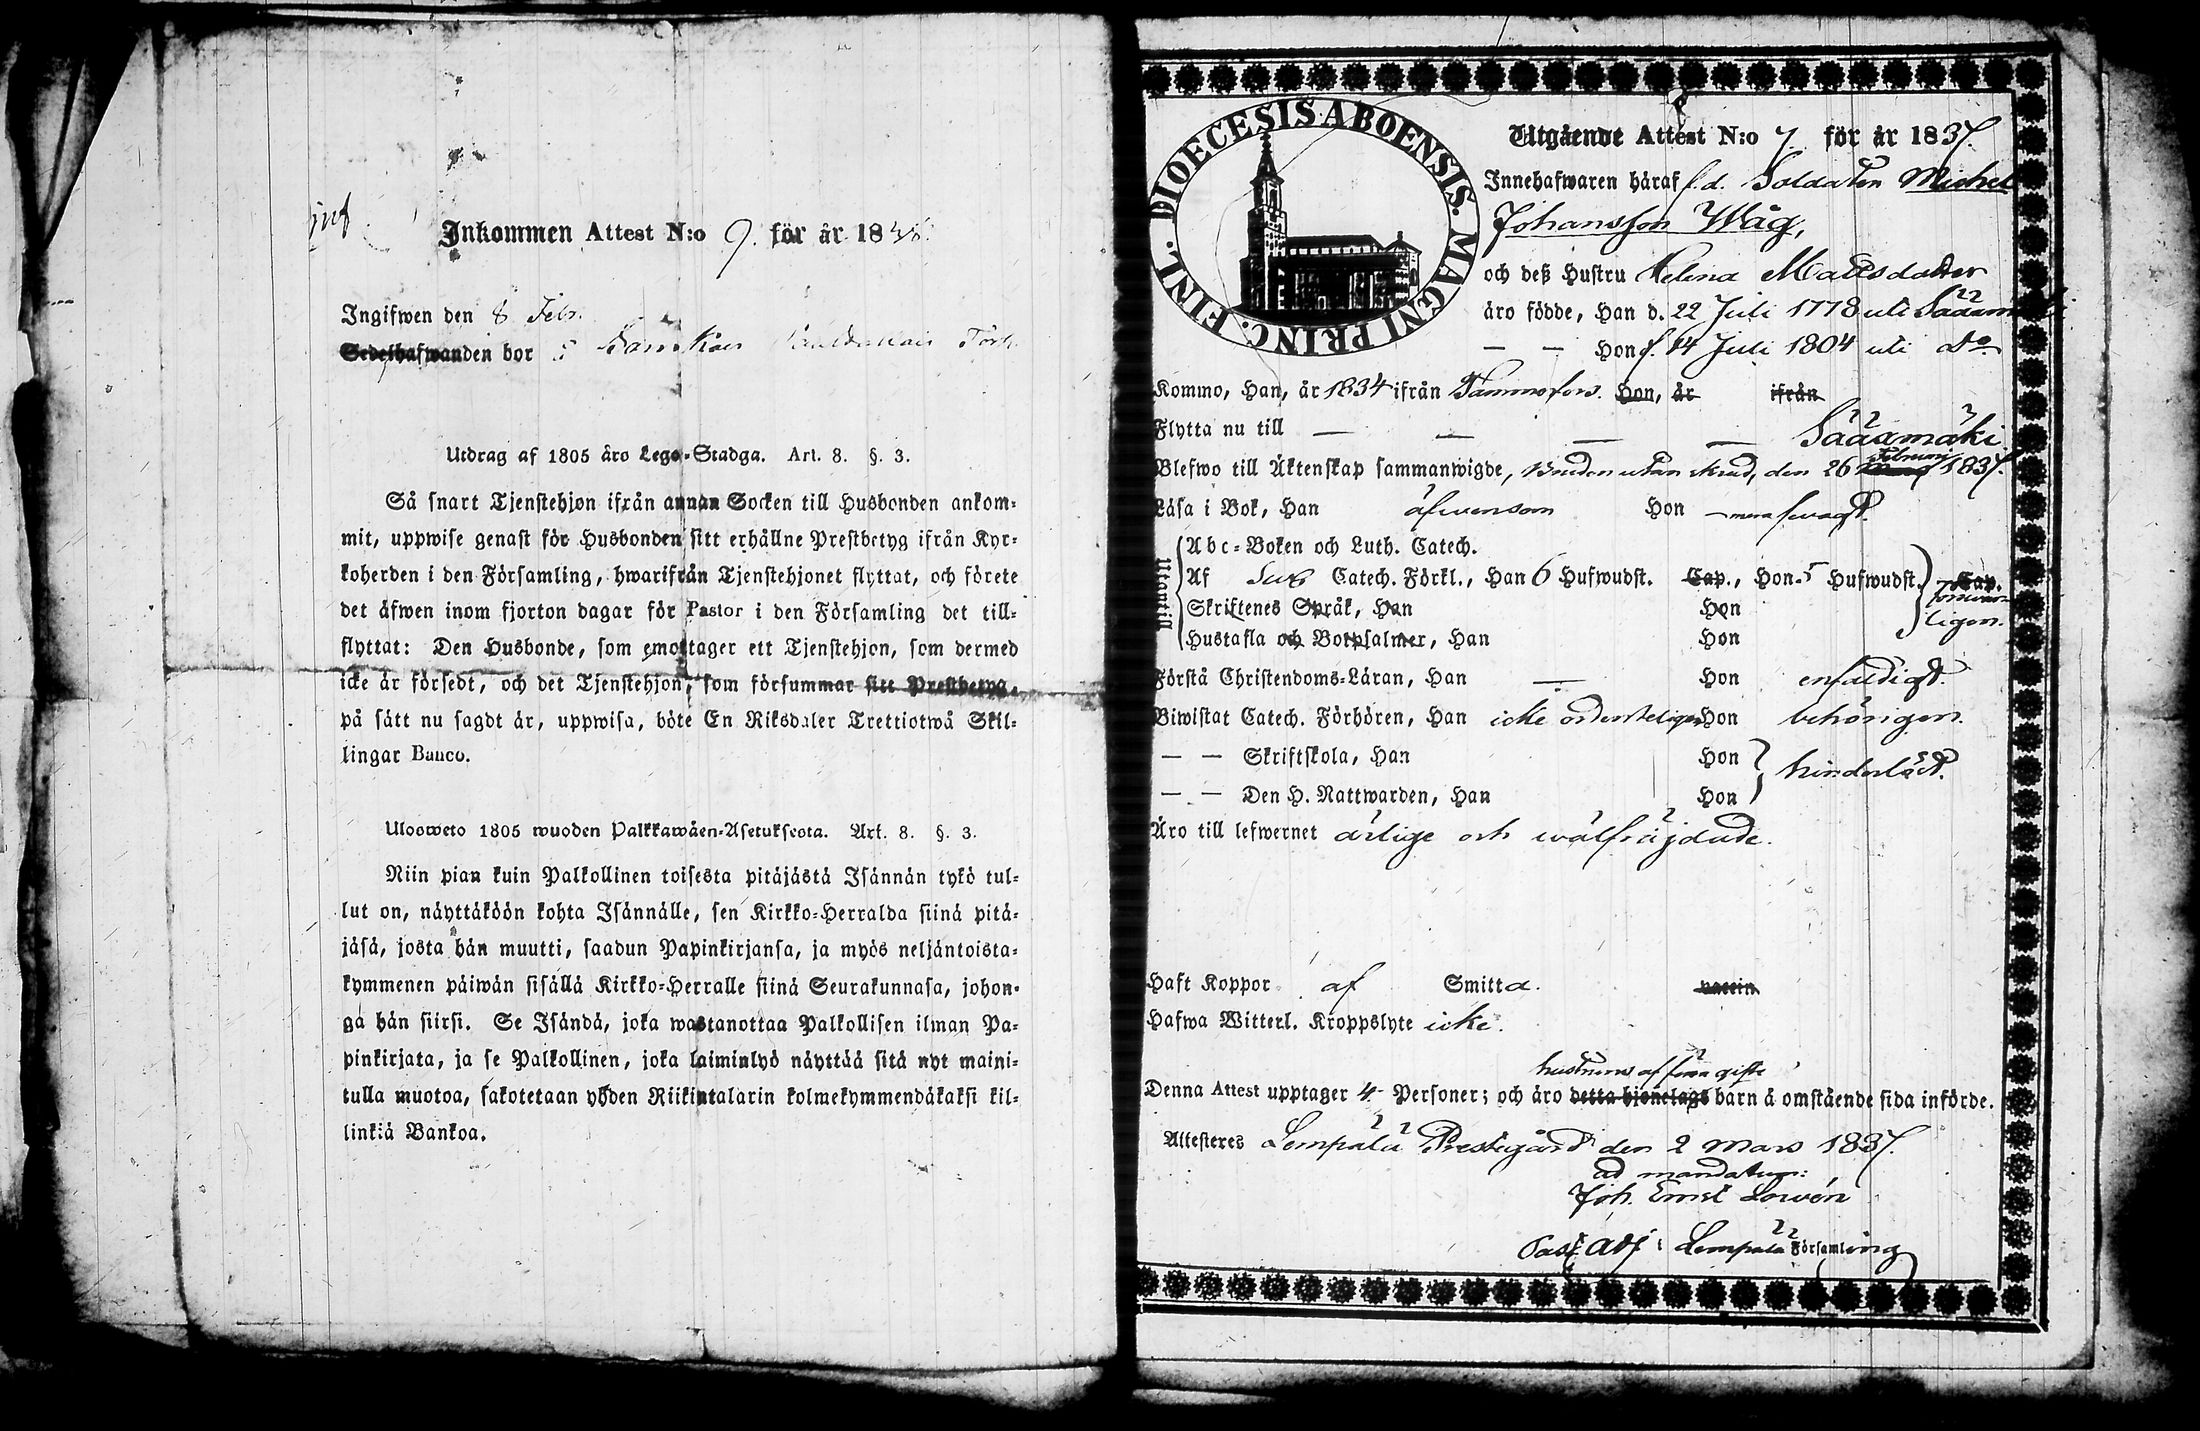 Inkommen Attest N:o 9. för år 18
Ingifwen den 8 Febr.
Sedelhafwanden bor
Utdrag af 1805 åro Lego-Stadga. Art. 8. §. 3.
Så snart Tjenstehjon ifrån annan Socken till Husbonden ankom-
mit, uppwise genast för Husbonden sitt erhållne Prestbetyg ifrån Kyr-
koherden i den Församling, hwarifrån Tjenstehjonet flyttat, och förete
det äfwen inom fjorton dagar för Pastor i den Församling det till-
flyttat: Den Husbonde, som emottager ett Tjenstehjon, som dermed
icke är försedt, och det Tjenstehjon, som försummar sitt Prestbetyg,
på sätt nu sagdt är, uppwisa, böte En Riksdaler Trettiotwå Skil-
lingar Banco.
Ulosweto 1805 wuoden Palkkawäen-Asetuksesta. Art. 8. §. 3.
Niin pian kuin Palkollinen toisesta pitäjästä Isännän tykö tul-
lut on, näyttäköön kohta Isännälle, sen Kirkko-Herralda siinä pitä-
jäsä, josta hän muutti, saadun Papinkirjansa, ja myös neljäntoista-
kymmenen päiwän sisällä Kirkko-Herralle siinä Seurakunnasa, johon-
ga hän siirsi. Se Isändä, joka wastanottaa Palkollisen ilman Pa-
pinkirjata, ja se Palkollinen, joka laiminlyö näyttää sitä nyt maini-
tulla muotoa, sakotetaan yhden Riikintalarin kolmekymmendäkaksi kil-
linkiä Bankoa.
DIOECESIS ABOENSIS. MAGNI PRINC. FINL.
Utgående Attest N:o 7. för år 1837.
Innehafwaren häraf f.d. Soldaten Michel
Johansson Wåg,
och deß Hustru Helena Mattsdotter
äro födde, Han d. 22 Juli 1778 uti Sääxmäki
— — Hon f. 14 Juli 1804 uti do
Kommo, Han, år 1834 ifrån Tammerfors. Hon, år ifrån
Flytta nu till — — — — Sääxmäki
Blefwo till Äktenskap sammanwigde, Bruden utan skrud, den 26 Februari 1837.
Läsa i Bok, Han äfwensom Hon mera swagt.
Utantill
Abc-Boken och Luth. Catech.
Af Catech. Förkl., Han 6 Hufwudst. Cap., Hon 5 Hufwudst. Cap.
Skriftenes Språk, Han Hon
Hustafla och Botpsalmer, Han Hon
Förstå Christendoms-Läran, Han — Hon enfaldigt.
Biwistat Catech. Förhören, Han icke ordenteligen Hon behörigen.
— — Skriftskola, Han Hon
— — Den H. Nattwarden, Han Hon
hinderlöst.
Äro till lefwernet ärlige och wälfräjdade.
Haft Koppor af Smitta. vaccin
Hafwa Witterl. Kroppslyte icke.
hustruns af förra gifte
Denna Attest upptager 4 Personer; och äro detta hjonelags barn å omstående sida införde.
Attesteres Lempälä Prestegård den 2 Mars 1837.
ad mandatum:
Joh. Ernst Lowén
Past. adj. i Lempälä Församling